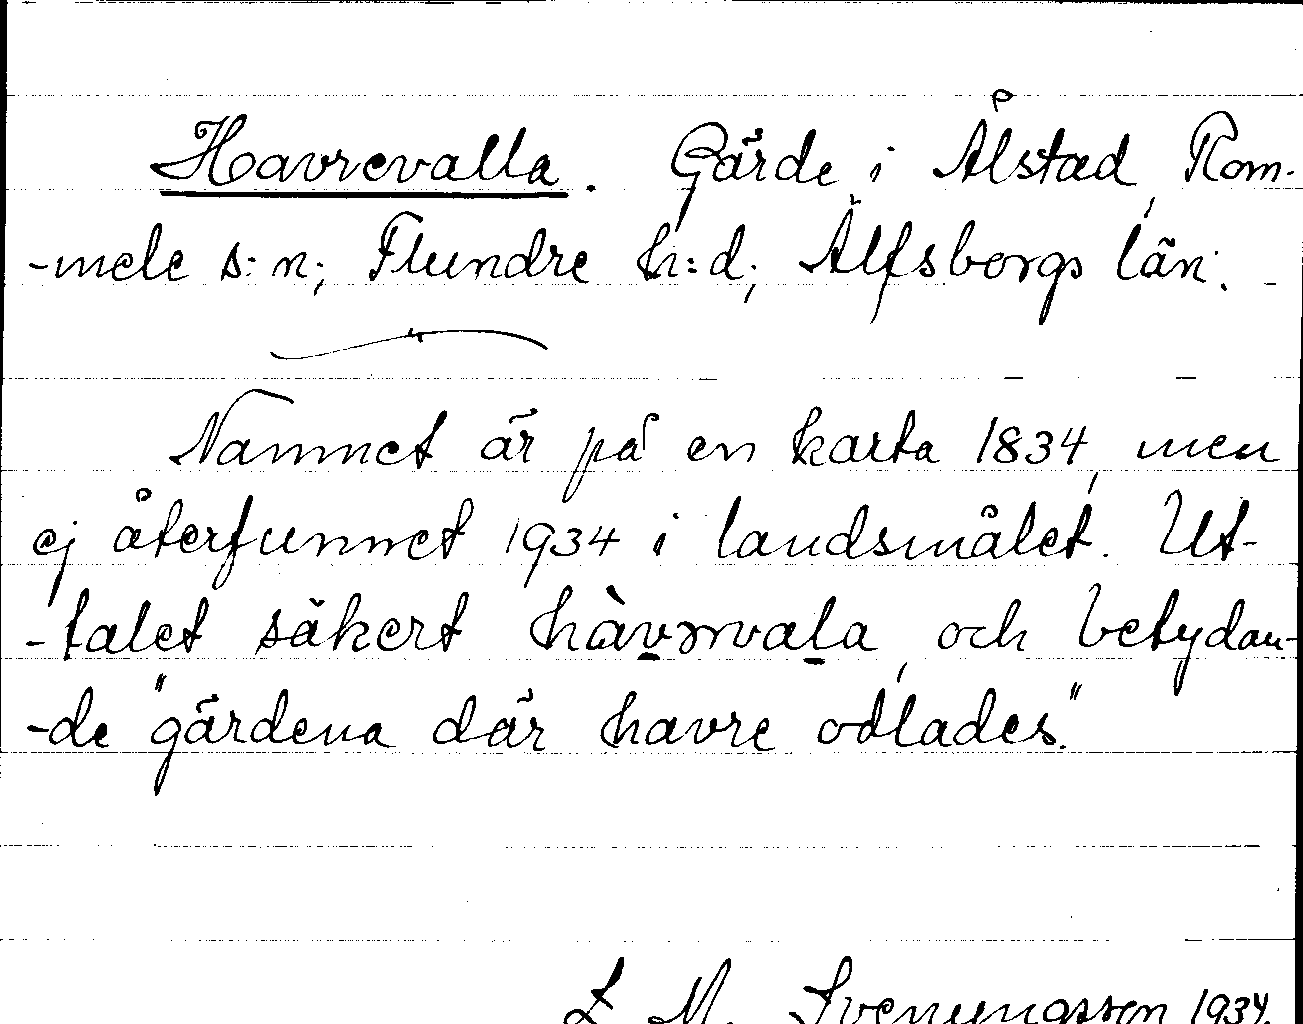 Havrevalla. Gärde i Ålstad, Rom-
-mele s:n; Flundre h:d; Älfsborgs län.
Namnet är på en karta 1834, men
ej återfunnet 1934 i landsmålet. Ut-
-talet säkert och betydan-
-de "gärdena där havre odlades."
L M. Svenungsson 1934.